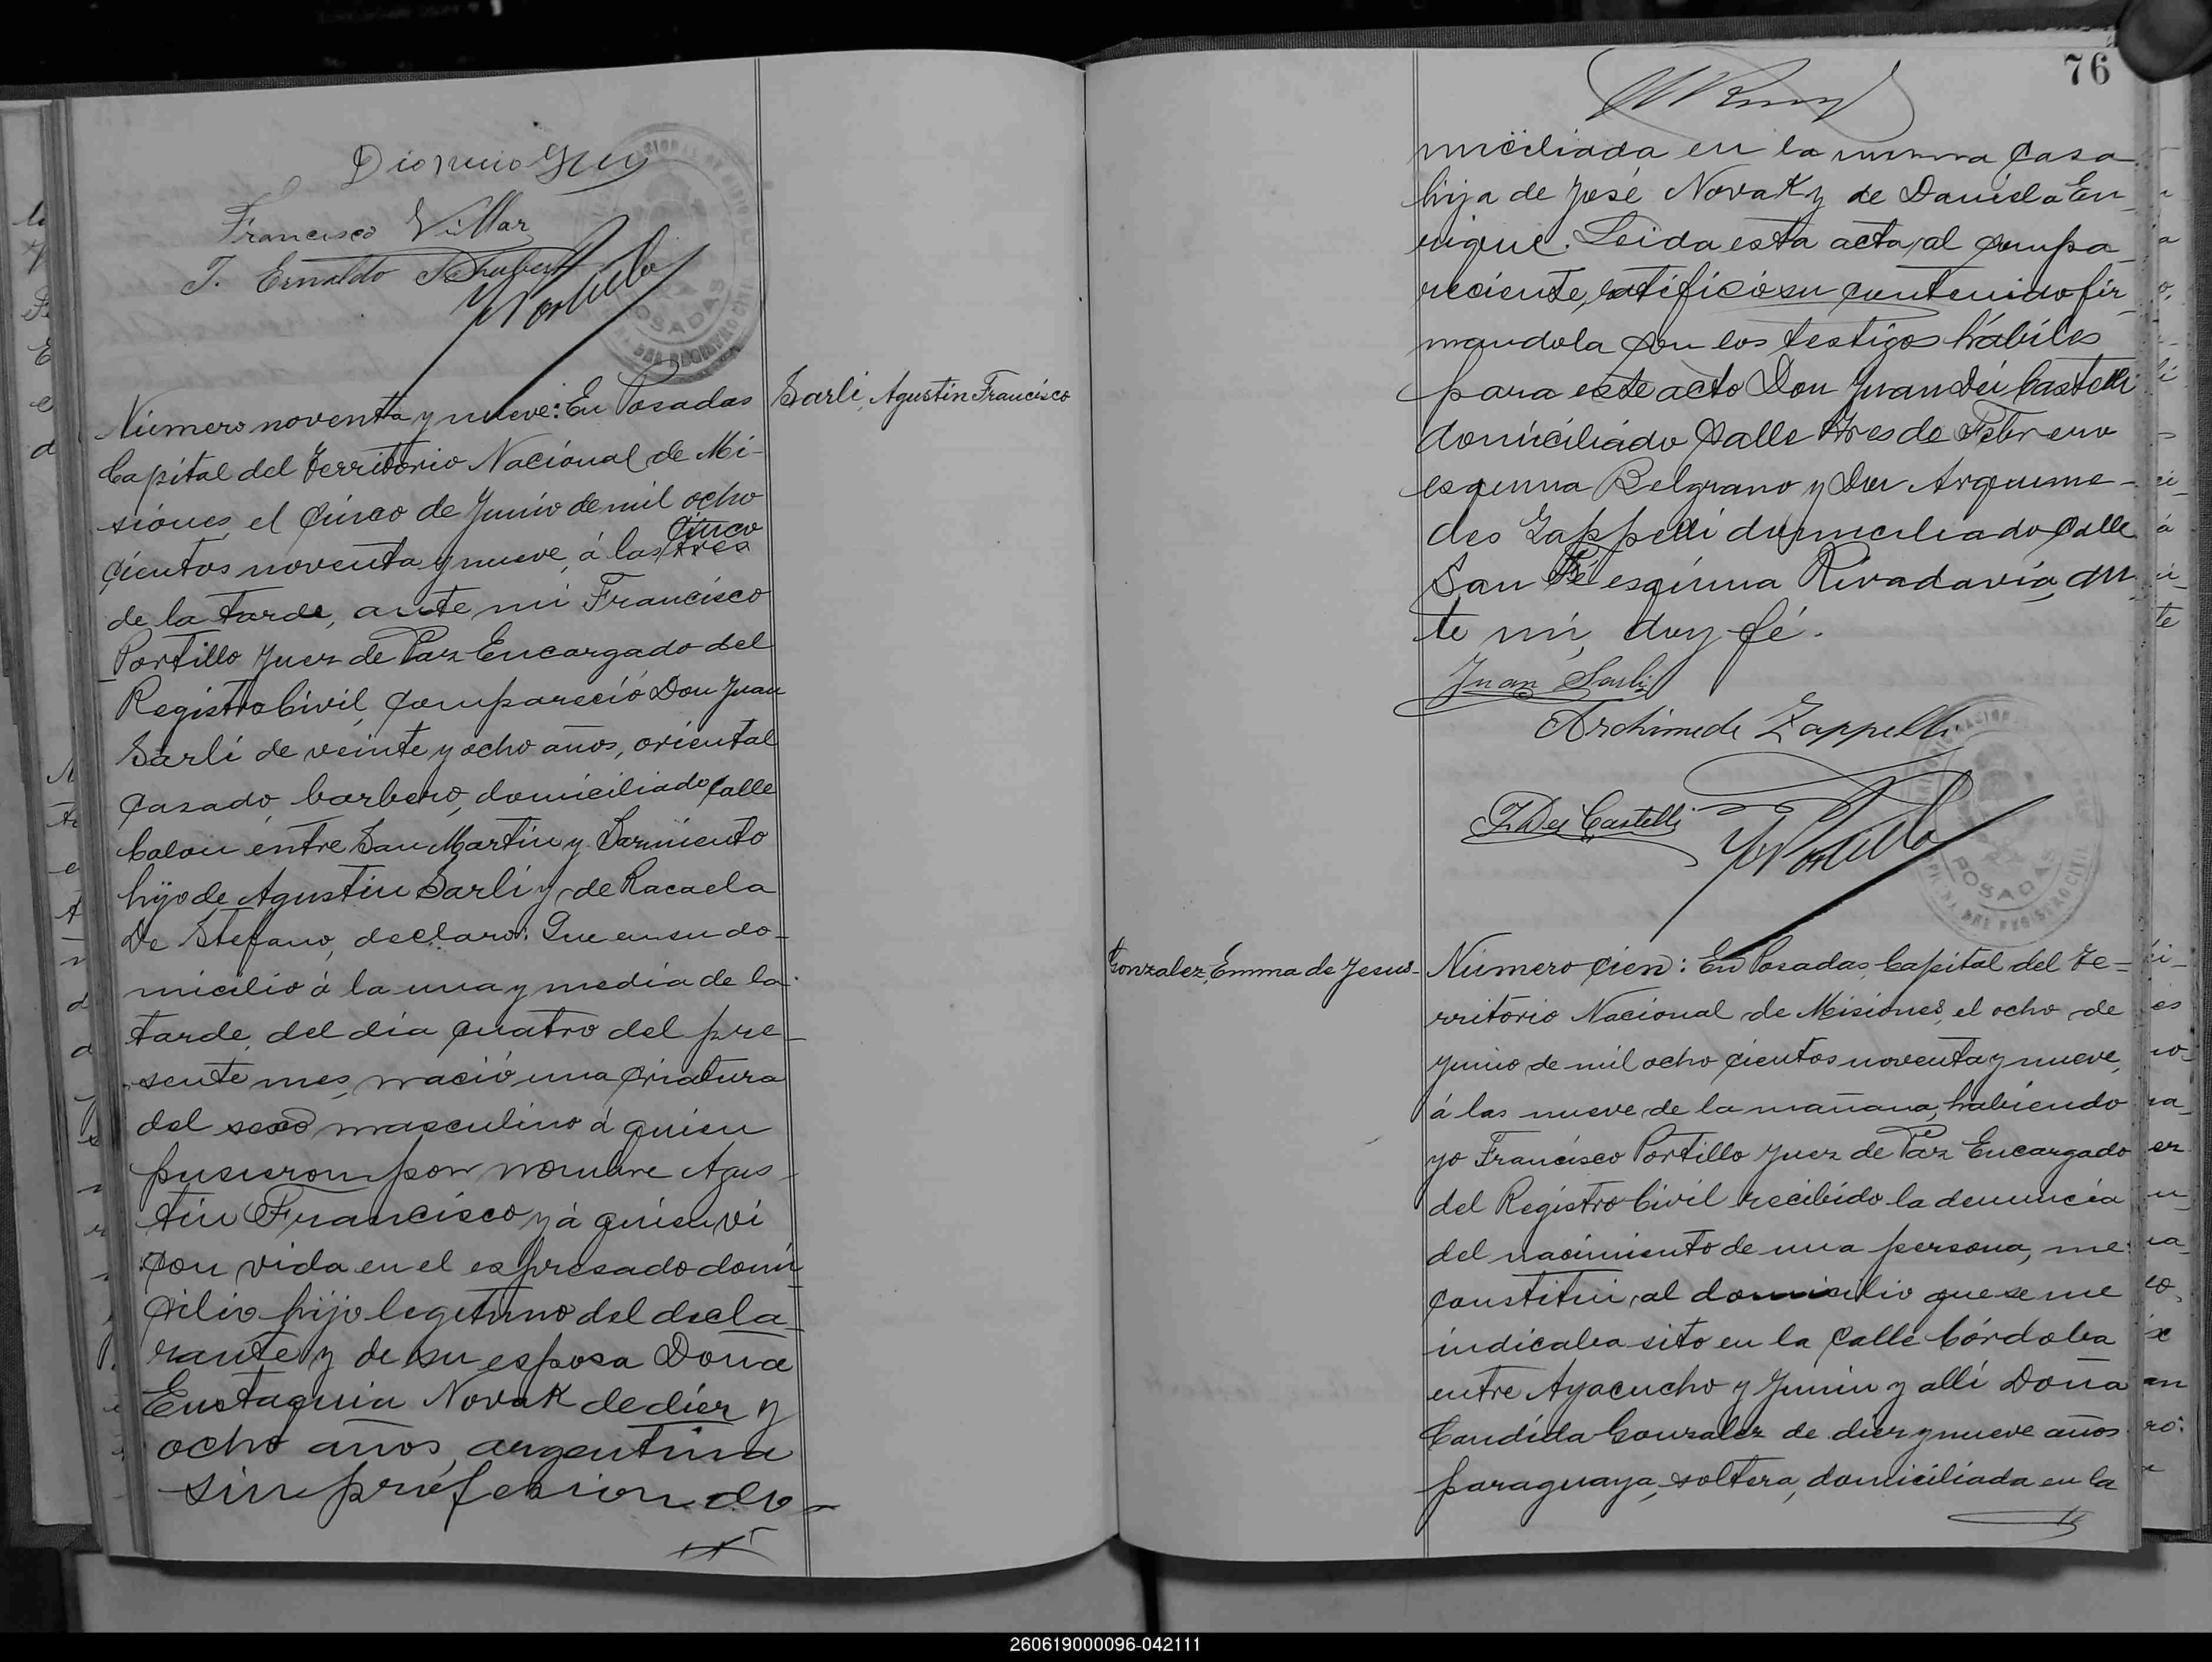 Dionicio
Francisco Villar
T. Ernaldo Schubert
Portillo
POSADAS
DEL REGISTRO CIVIL
Número noventa y nueve: En Posadas
Sarli, Agustin Francisco
Capital del Territorio Nacional de Mi-
siones, el cinco de Junio de mil ocho
cinco
cientos noventa y nueve, á las tres
de la tarde, ante mi Francisco
Portillo Juez de Paz Encargado del
Registro Civil, compareció Don Juan
Sarli de veinte y ocho años, oriental
casado, barbero, domiciliado calle
Colon entre San Martin y Sarmiento
hijo de Agustin Sarli y de Racaela
De Stefano, declaró: Que en su do-
micilio á la una y media de la
tarde, del dia cuatro del pre-
sente mes, nació una criatura
del sexo masculino á quien
pusieron por nombre Agus-
tin Francisco y á quien vi
con vida en el espresado domi-
cilio hijo legitimo del decla-
rante y de su esposa Doña
Eustaquia Novak de diez y
ocho años, argentina
sin profesion do-
76
miciliada en la misma casa
hija de José Novak y de Daniela En-
rique. Leida esta acta, al compa-
reciente, ratificó su contenido fir-
mandola con los testigos hábiles
para este acto Don Juan Dei Castelli
domiciliado calle Tres de Febrero
esquina Belgrano y Don Arquime-
des Zappelli domiciliado calle
San Fé esquina Rivadavia, an-
te mi, doy fé.
Juan Sarli
Archimede Zappelli
J. Dei Castelli
Portillo
POSADAS
DEL REGISTRO CIVIL
Gonzalez, Emma de Jesus-
Número cien: En Posadas, Capital del Te-
rritorio Nacional de Misiones, el ocho de
Junio de mil ocho cientos noventa y nueve,
á las nueve de la mañana, habiendo
yo Francisco Portillo Juez de Paz Encargado
del Registro Civil recibido la denuncia
del nacimiento de una persona, me
constitui, al domicilio que se me
indicaba sito en la calle Córdoba
entre Ayacucho y Junin y alli Doña
Candida Gonzalez de diez y nueve años
paraguaya, soltera, domiciliada en la
260619000096-042111